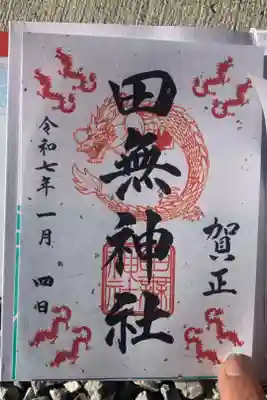 賀正
田無神社
令和七年一月四日